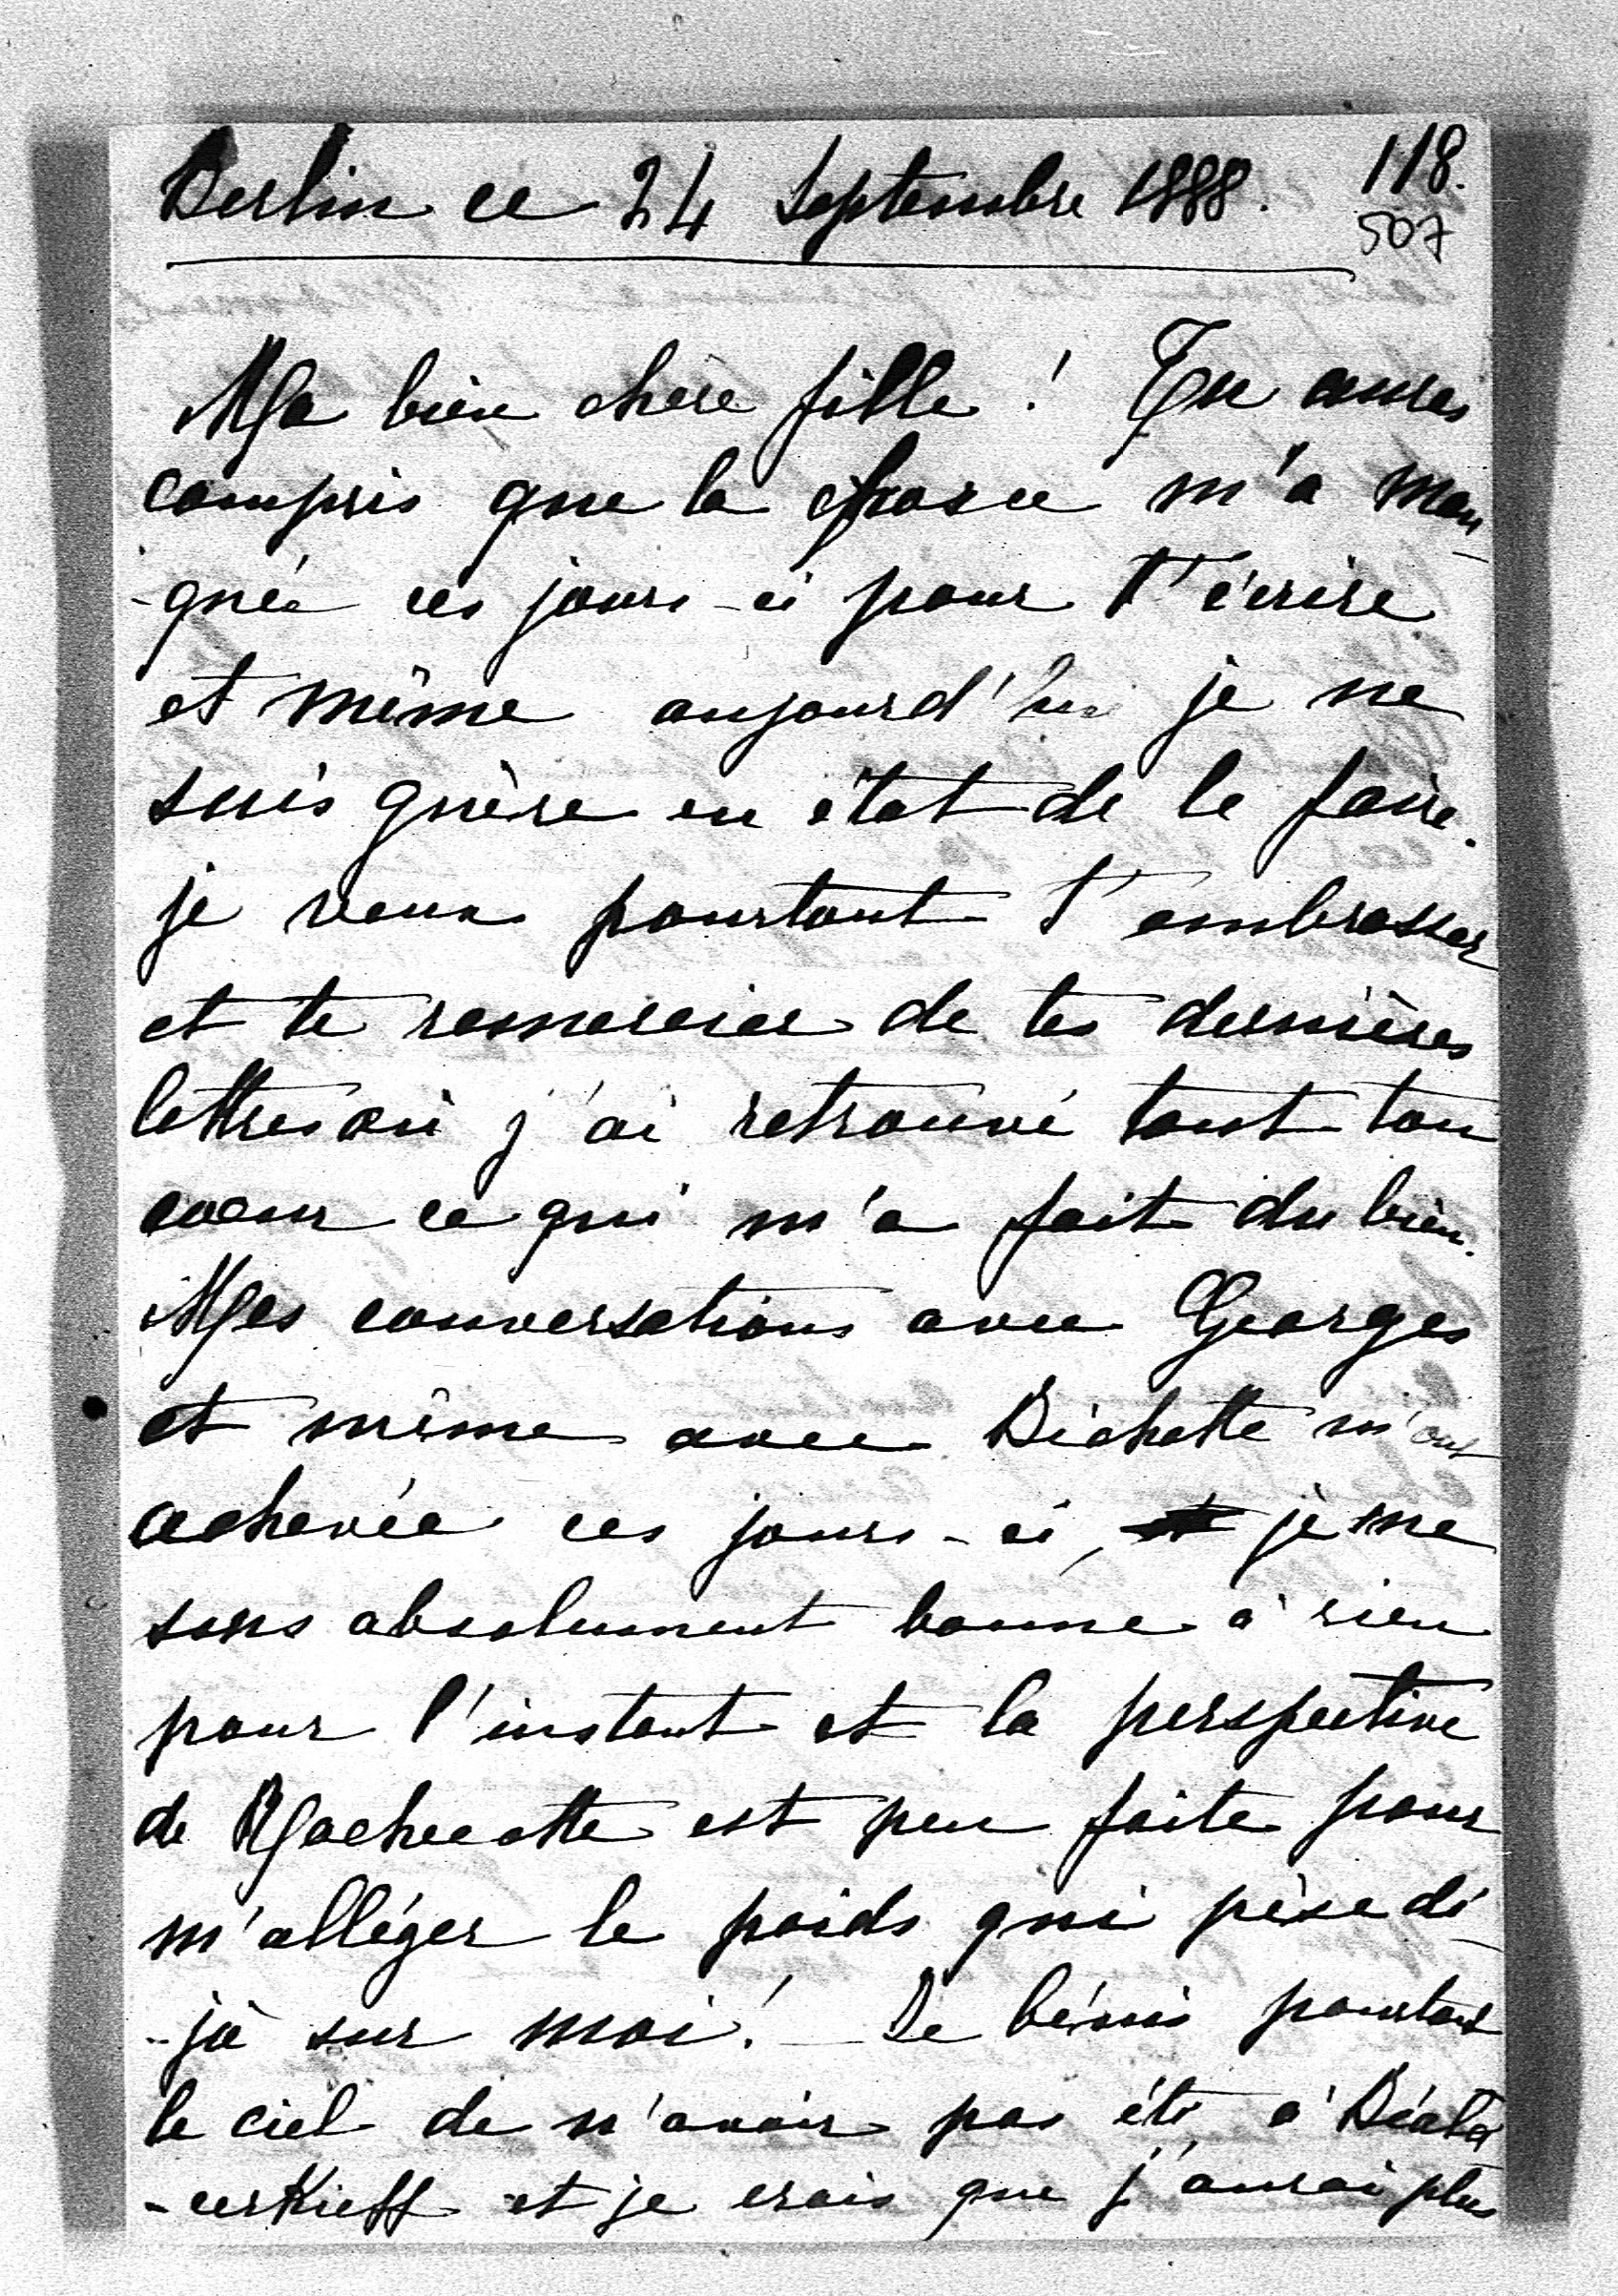 Berlin ce 24 Septembre 1888.
118.
507
Ma bien chère fille! Tu auras
compris que la force m'a man
-quée ces jours-ci pour t'écrire
et même aujourd'hui je ne
suis guère en état de le faire.
je veux pourtant t'embrasser
et te remercier de tes dernières
lettres où j'ai retrouvé tout ton
coeur ce qui m'a fait du bien.
Mes conversations avec Georges
et même avec Bichette m'ont
achevée ces jours-ci, je me
sens absolument bonne à rien
pour l'instant et la perspective
de est peu faite pour
m'alléger le poids qui pèse dé
-jà sur moi! Je bénis pourtant
le ciel de n'avoir pas été à Biala
-cerkieff et je crois que j'aurai plus